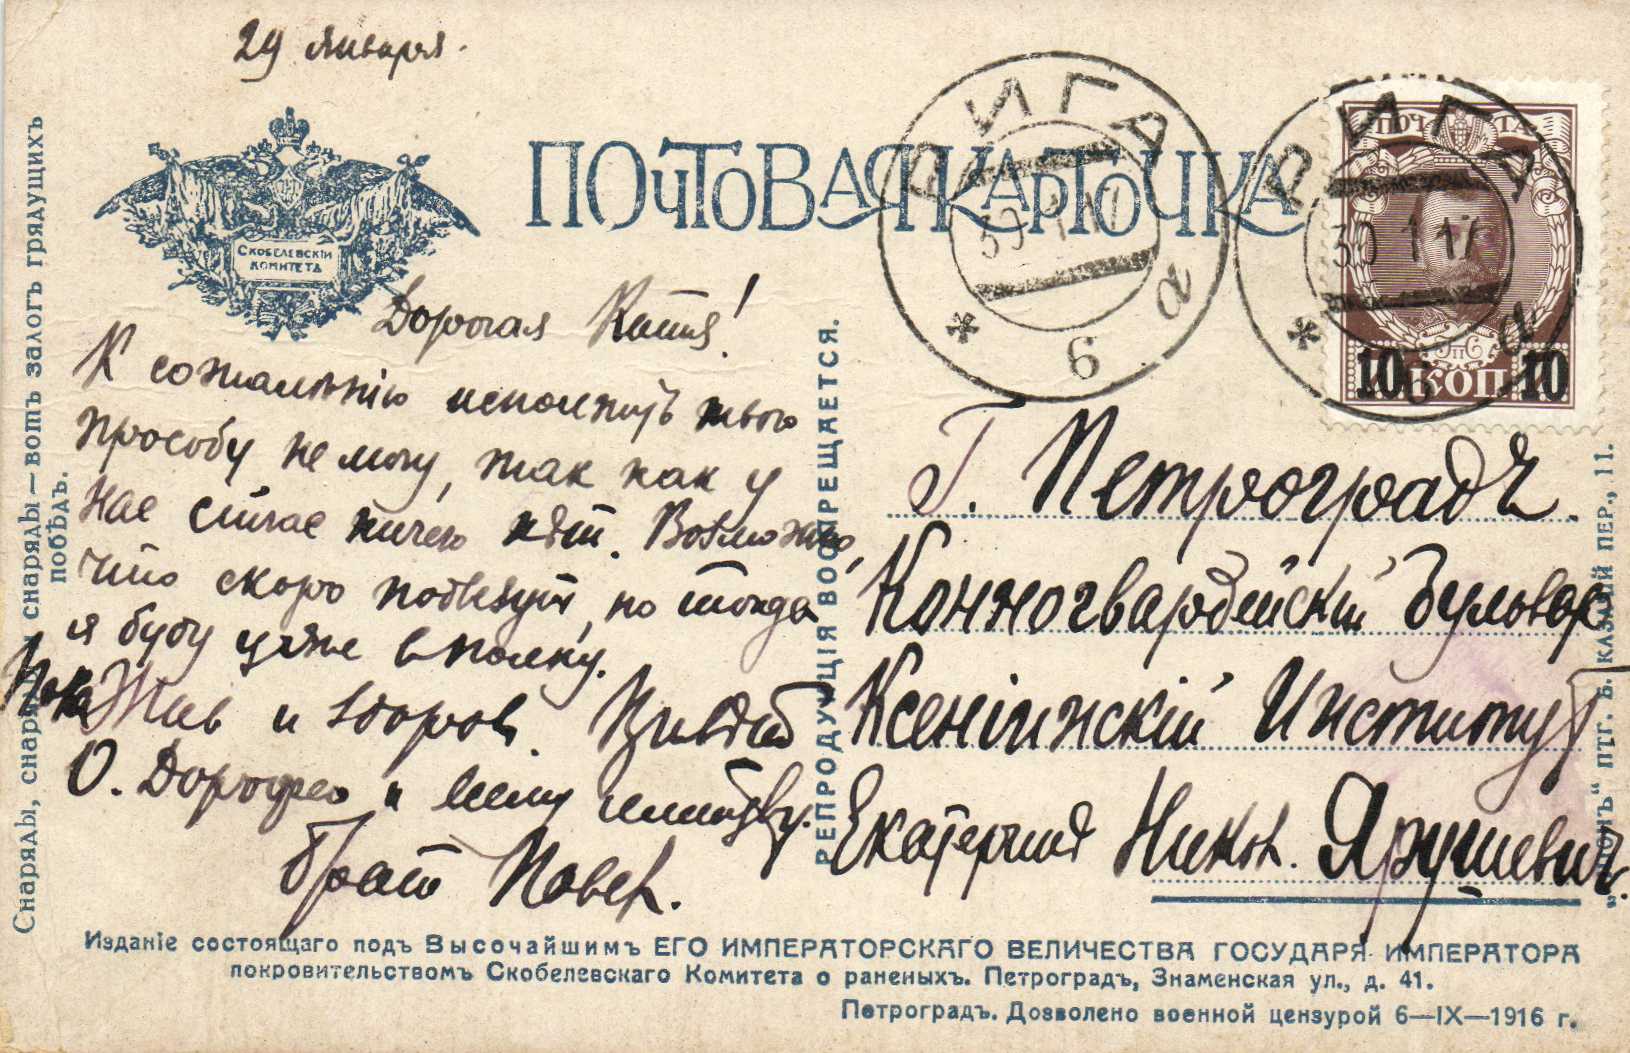 29 января.
ПОЧТОВАЯ КАРТОЧКА
СКОБЕЛЕВСКІЙ
КОМИТЕТЪ
РИГА
30 1 17
* 6 а
РИГА
30 1 17
* 6 а
ПОЧТА
10 КОП 10
Дорогая Катя!
К сожаленію исполнить твою
просьбу не могу, так как у
нас сейчас ничего нѣт. Возможно,
что скоро подвезут, но тогда
я буду уже в полку.
Пока Жив и здоров. Привѣт
О. Дорофею и всему
Брат Павел.
Г. Петроградъ.
Конногвардейскій бульвар
Ксенінскій Институт
Екатерина Никол. Ярушевич.
Снаряды, снаряды и снаряды — вотъ залогъ грядущихъ
побѣдъ.
РЕПРОДУКЦІЯ ВОСПРЕЩАЕТСЯ.
ПТГ. Б. КАЗАЧІЙ ПЕР., 11.
Изданіе состоящаго подъ Высочайшимъ ЕГО ИМПЕРАТОРСКАГО ВЕЛИЧЕСТВА ГОСУДАРЯ ИМПЕРАТОРА
покровительствомъ Скобелевскаго Комитета о раненыхъ. Петроградъ, Знаменская ул., д. 41.
Петроградъ. Дозволено военной цензурой 6—IX—1916 г.